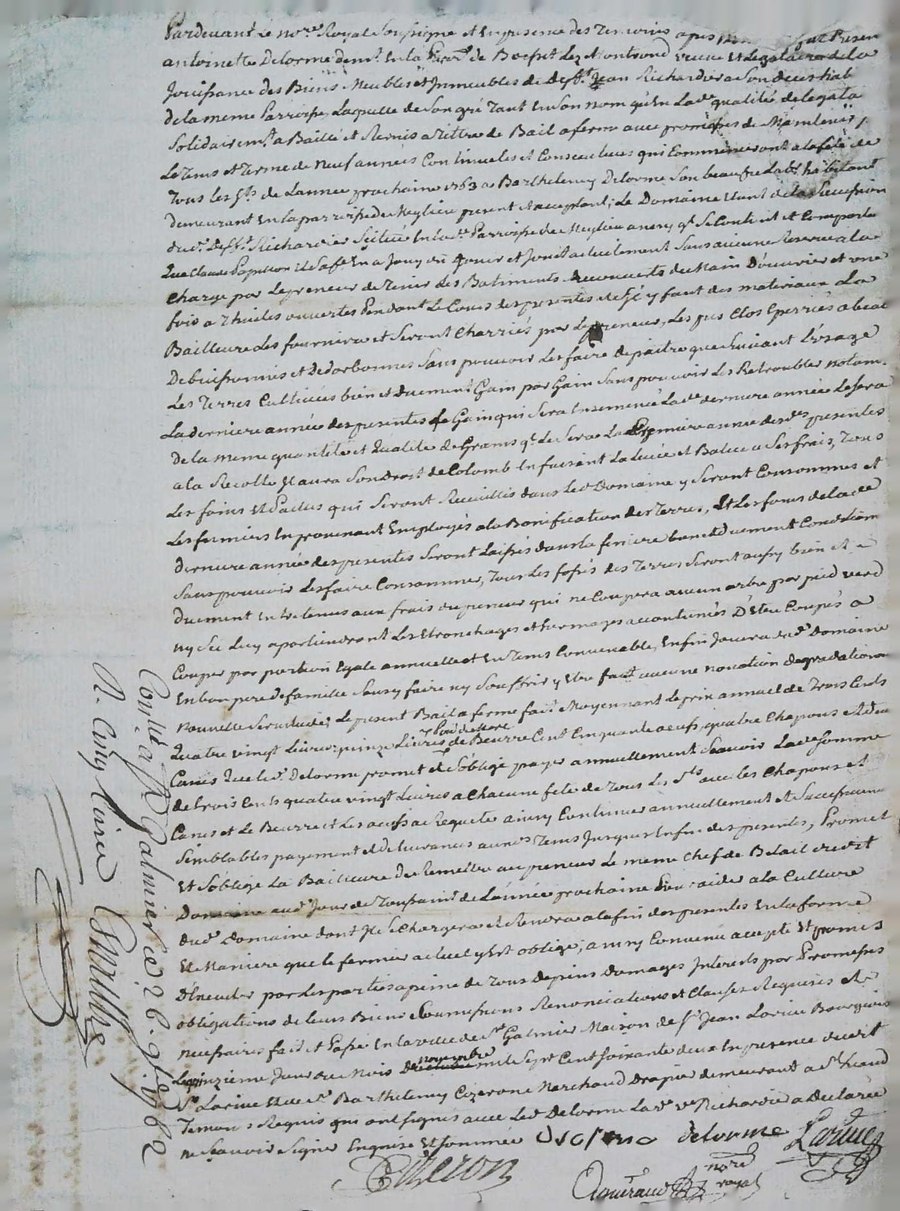 Pardevant Le no.re Royal Soussigné et En presence des Temoins apres
antoinette Delorme dem.t En la Parr.e de Boesset Lez Montrond veuve et Legataire de la
Jouissance des Biens Meubles et Immeubles de Deff.t Jean Richardier Son
de la meme Parroisse Laquelle de Son gré Tant En Son nom qu'En Lad.e qualité de Legata
Solidairem.t a Baillé et Remis a Titre de Bail a ferme avec promesses de Maintenir
Le Tems et Terme de Neuf années Continuelles et Consecutives qui Commenceront a la fete de
Tous les S.ts de L'année prochaine 1763 a Barthelemy Delorme Son beaufre Lab.r habitant
demeurant En la parroisse de Meylieu present et acceptant; Le Domaine de la Succession
dud. deff.t Richardier Scitué En lad.e Parroisse de Meylieu ainsy q.l Se Contient et Comporte
Que Claude Papillon En a Jouy ou Jouir et Jouit actuellement Sans aucune Reserve a la
Charge par Le preneur de Tenir Les Batiments Recouverts de Main D'ouvrier et une
fois a Thuiles ouvertes Pendant Le Cours des presentes et S'il y faut des materiaux La
Bailleure Les fournira et Seront Charriés par Le preneur, Les pres Clos
De buissonnés et Sans pouvoir Les faire depaitre que Suivant L'usage
Les Terres Cultivées bien et duement Gain par Gain Sans pouvoir Les Retroubler notam.
La derniere année des presentes Le Gain qui Sera Ensemencé Lad.e derniere année Le Sera
de la meme quantité et Qualité de Grains q.l Le Sera La Premiere année des d.es presentes
a la Recolte Il aura Son Droit de Colomb En faisant La Levée et Batue a Ses frais, Tous
Les foins et Pailles qui Seront Recueillis dans Led. Domaine y Seront Consommés et
Les fumiers En provenant Employés a la Bonification des Terres, Et Les foins de la d.e
derniere année des presentes Seront Laissés dans la feniere bien et duement Conditionn
Sans pouvoir Les faire Consommer, Tous Les fossés des Terres Seront aussy bien et
duement Entretenus aux frais du preneur qui ne Coupera aucun arbre par pied verd
ny Sec Luy apartiendront Les Etronchages et accoutumés D'Etre Coupés a
Couper par portion Egale annuellement et En Tems Convenable, Enfin Jouira dud. Domaine
En bon pere de famille Sans y faire ny Souffrir y Etre fait aucune novation degradation
nouvelle Servitude; Le present Bail a ferme fait Moyennant Le prix annuel de Trois Cents
Quatre vingt Livres, quinze Livres poid de Marc de Beurre Cent Cinquante oeufs, quatre Chapons et deux
Canes Que led. Delorme promet et S'oblige payer annuellement Scavoir Lad.e Somme
de Trois Cents quatre vingt Livres a Chacune fete de Tous Les S.ts avec les Chapons et
Canes et Le Beurre et Les oeufs a Requete ainsy Continuer annuellement et Successivem
Semblables payement et delivrances aux.es Tems Jusques En fin des presentes, Promet
Et S'oblige La Bailleure de Remettre au preneur Le meme Chef de Betail
Domaine aud. Jour de Toussaint de L'année prochaine Pour aider a la Culture
dud. Domaine dont Il Se Chargera et Rendra a la fin des presentes En la forme
Et Maniere que le fermier actuel y Est obligé, ainsy Convenu accepté et promis
D'Executer par Les parties a peine de Tous depens Domages Interets par Promesses
obligations de leurs Biens Soumissions Renonciations et Clauses Requises et
necessaires fait et Passé En la ville de S.t Galmier Maison de S.r Jean Larive Bourgeois
Le quinzieme Jour du Mois de novembre mil Sept Cent Soixante deux En presence dud. S.r
S.r Larive Et de S.r Barthelemy Cizeron Marchand Drapier demeurant a S.t
Temoins Requis qui ont Signés avec Led. Delorme La d.e v.e Richardier a Declaré
ne Scavoir Signer Enquise Et Sommée
delorme Larive
Cizeron
nore
royal
Con.lé a S.t Galmier Le 26 9.bre 1762
R.